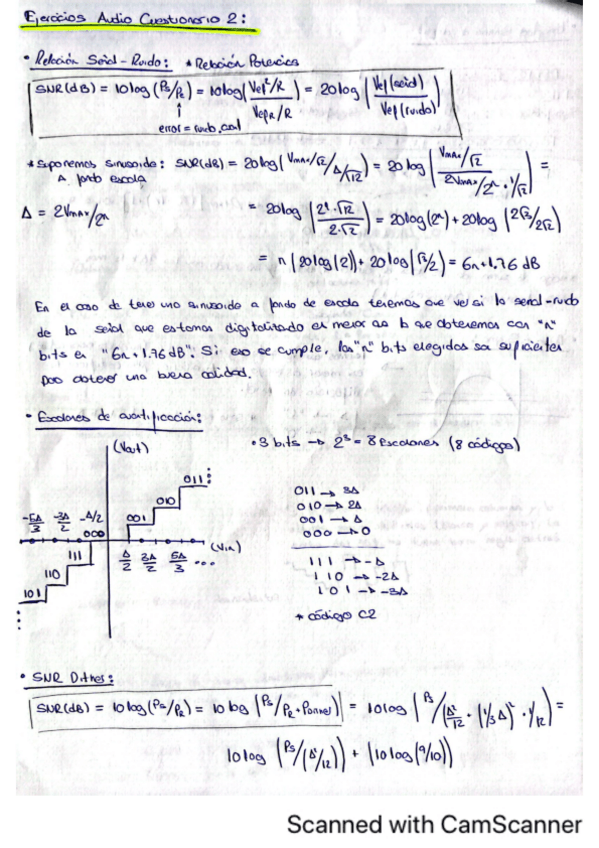 Ejercicios Audio Cuestionario 2:
• Relación Señal-Ruido: * Relación Potencias
SNR(dB) = 10log(Ps/PR) = 10log(Vef²/R / VefR/R) = 20log(Vef(señal) / Vef(ruido))
error = ruido cont
* Suponemos sinusoide: SNR(dB) = 20log(Vmax/√2 / Δ/√12) = 20log(Vmax/√2 / 2Vmax/2ⁿ · 1/√12) =
A fondo escala
Δ = 2Vmax/2ⁿ
= 20log(2ⁿ·√12 / 2·√2) = 20log(2ⁿ) + 20log(2√3/2√2)
= n(20log(2)) + 20log(√3/√2) = 6n+1.76 dB
En el caso de tener una sinusoide a fondo de escala tenemos que ver si la señal-ruido
de la señal que estamos digitalizando es menor que la que obtenemos con "n"
bits es "6n+1.76dB". Si eso se cumple, los "n" bits elegidos son suficientes
para obtener una buena calidad.
• Escalones de cuantificación:
(Vout)
• 3 bits → 2³ = 8 Escalones (8 códigos)
011
010
001
000
111
110
101
-5Δ/3 -3Δ/2 -Δ/2
Δ/2 3Δ/2 5Δ/3 ...
(Vin)
011 → 3Δ
010 → 2Δ
001 → Δ
000 → 0
111 → -Δ
110 → -2Δ
101 → -3Δ
* código C2
• SNR Dither:
SNR(dB) = 10log(Ps/PR) = 10log(Ps/PR+Pdither) = 10log(Ps/(Δ²/12 + (1/3Δ)²·1/12)) =
10log(Ps/(Δ²/12)) + (10log(9/10))
Scanned with CamScanner